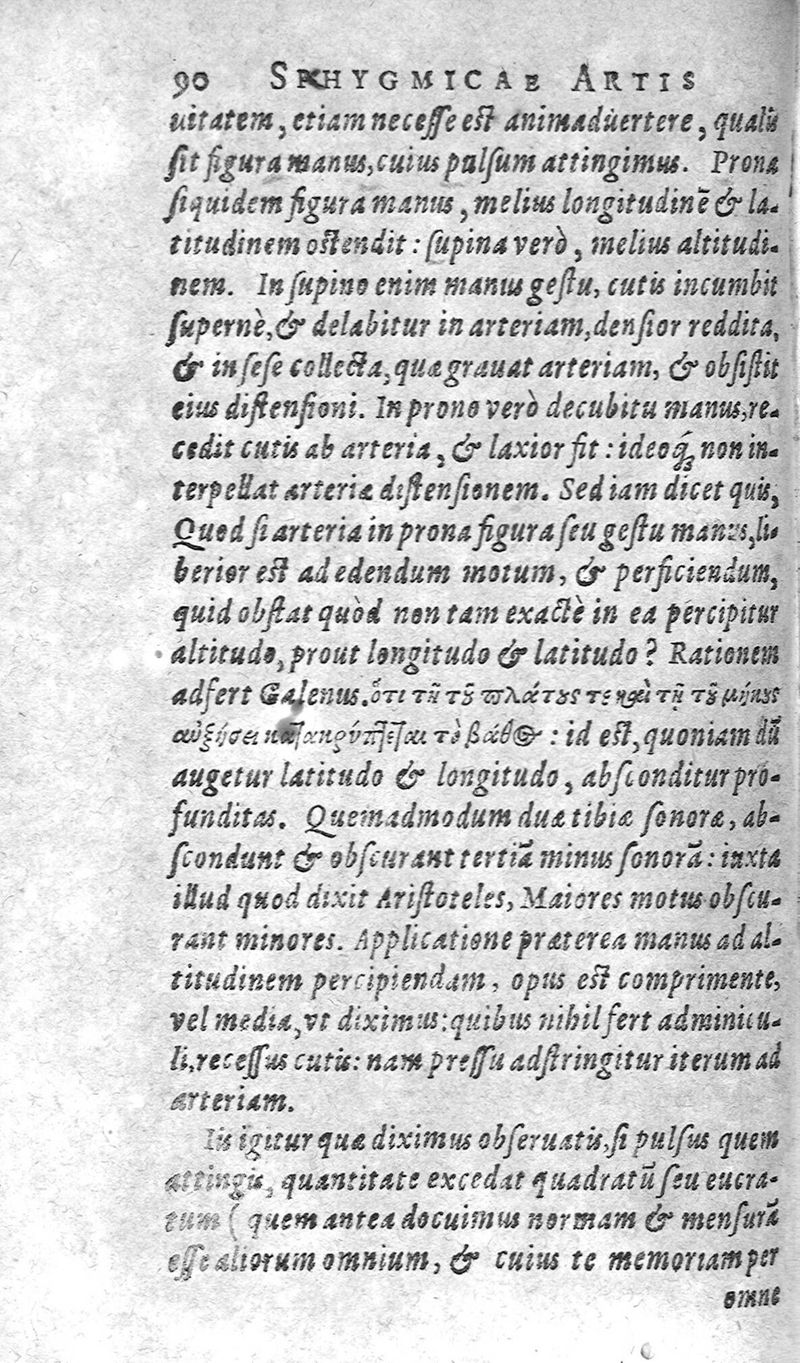 90 SPHYGMICAE ARTIS
uitatem, etiam necesse est animaduertere, qualis
sit figura manus, cuius pulsum attingimus. Prona
siquidem figura manus, melius longitudinē & la-
titudinem ostendit: supina verò, melius altitudi-
nem. In supino enim manus gestu, cutis incumbit
supernè, & delabitur in arteriam, densior reddita,
& in sese collecta, quæ grauat arteriam, & obsistit
eius distensioni. In prono verò decubitu manus, re-
cedit cutis ab arteria, & laxior fit: ideoq́; non in-
terpellat arteriæ distensionem. Sed iam dicet quis,
Quod si arteria in prona figura seu gestu manus, li-
berior est ad edendum motum, & perficiendum,
quid obstat quòd non tam exactè in ea percipitur
altitudo, prout longitudo & latitudo? Rationem
adfert Galenus. ὅτι τῇ τοῦ πλάτους τε καὶ τῇ τοῦ μήκους
αὐξήσει κατακρύπτεται τὸ βάθος: id est, quoniam dū
augetur latitudo & longitudo, absconditur pro-
funditas. Quemadmodum duæ tibiæ sonoræ, ab-
scondunt & obscurant tertiā minus sonorā: iuxta
illud quod dixit Aristoteles, Maiores motus obscu-
rant minores. Applicatione præterea manus ad al-
titudinem percipiendam, opus est comprimente,
vel media, vt diximus: quibus nihil fert adminicu-
li, recessus cutis: nam pressu adstringitur iterum ad
arteriam.
Iis igitur quæ diximus obseruatis, si pulsus quem
attingis, quantitate excedat quadratū seu eucra-
tum ( quem antea docuimus normam & mensurā
esse aliorum omnium, & cuius te memoriam per
omne